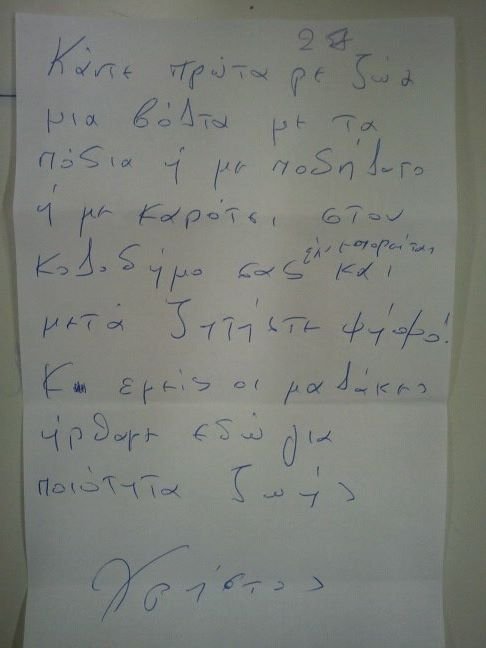 Κάντε πρώτα ρε ζώα
μια βόλτα με τα
πόδια ή με ποδήλατο
ή με καρότσι στον
μπορείται
κολοδήμο σας και
μετά ζητήστε ψήφο!
Κι εμείς οι μαλάκες
ήρθαμε εδώ για
ποιότητα ζωής
Χρήστος